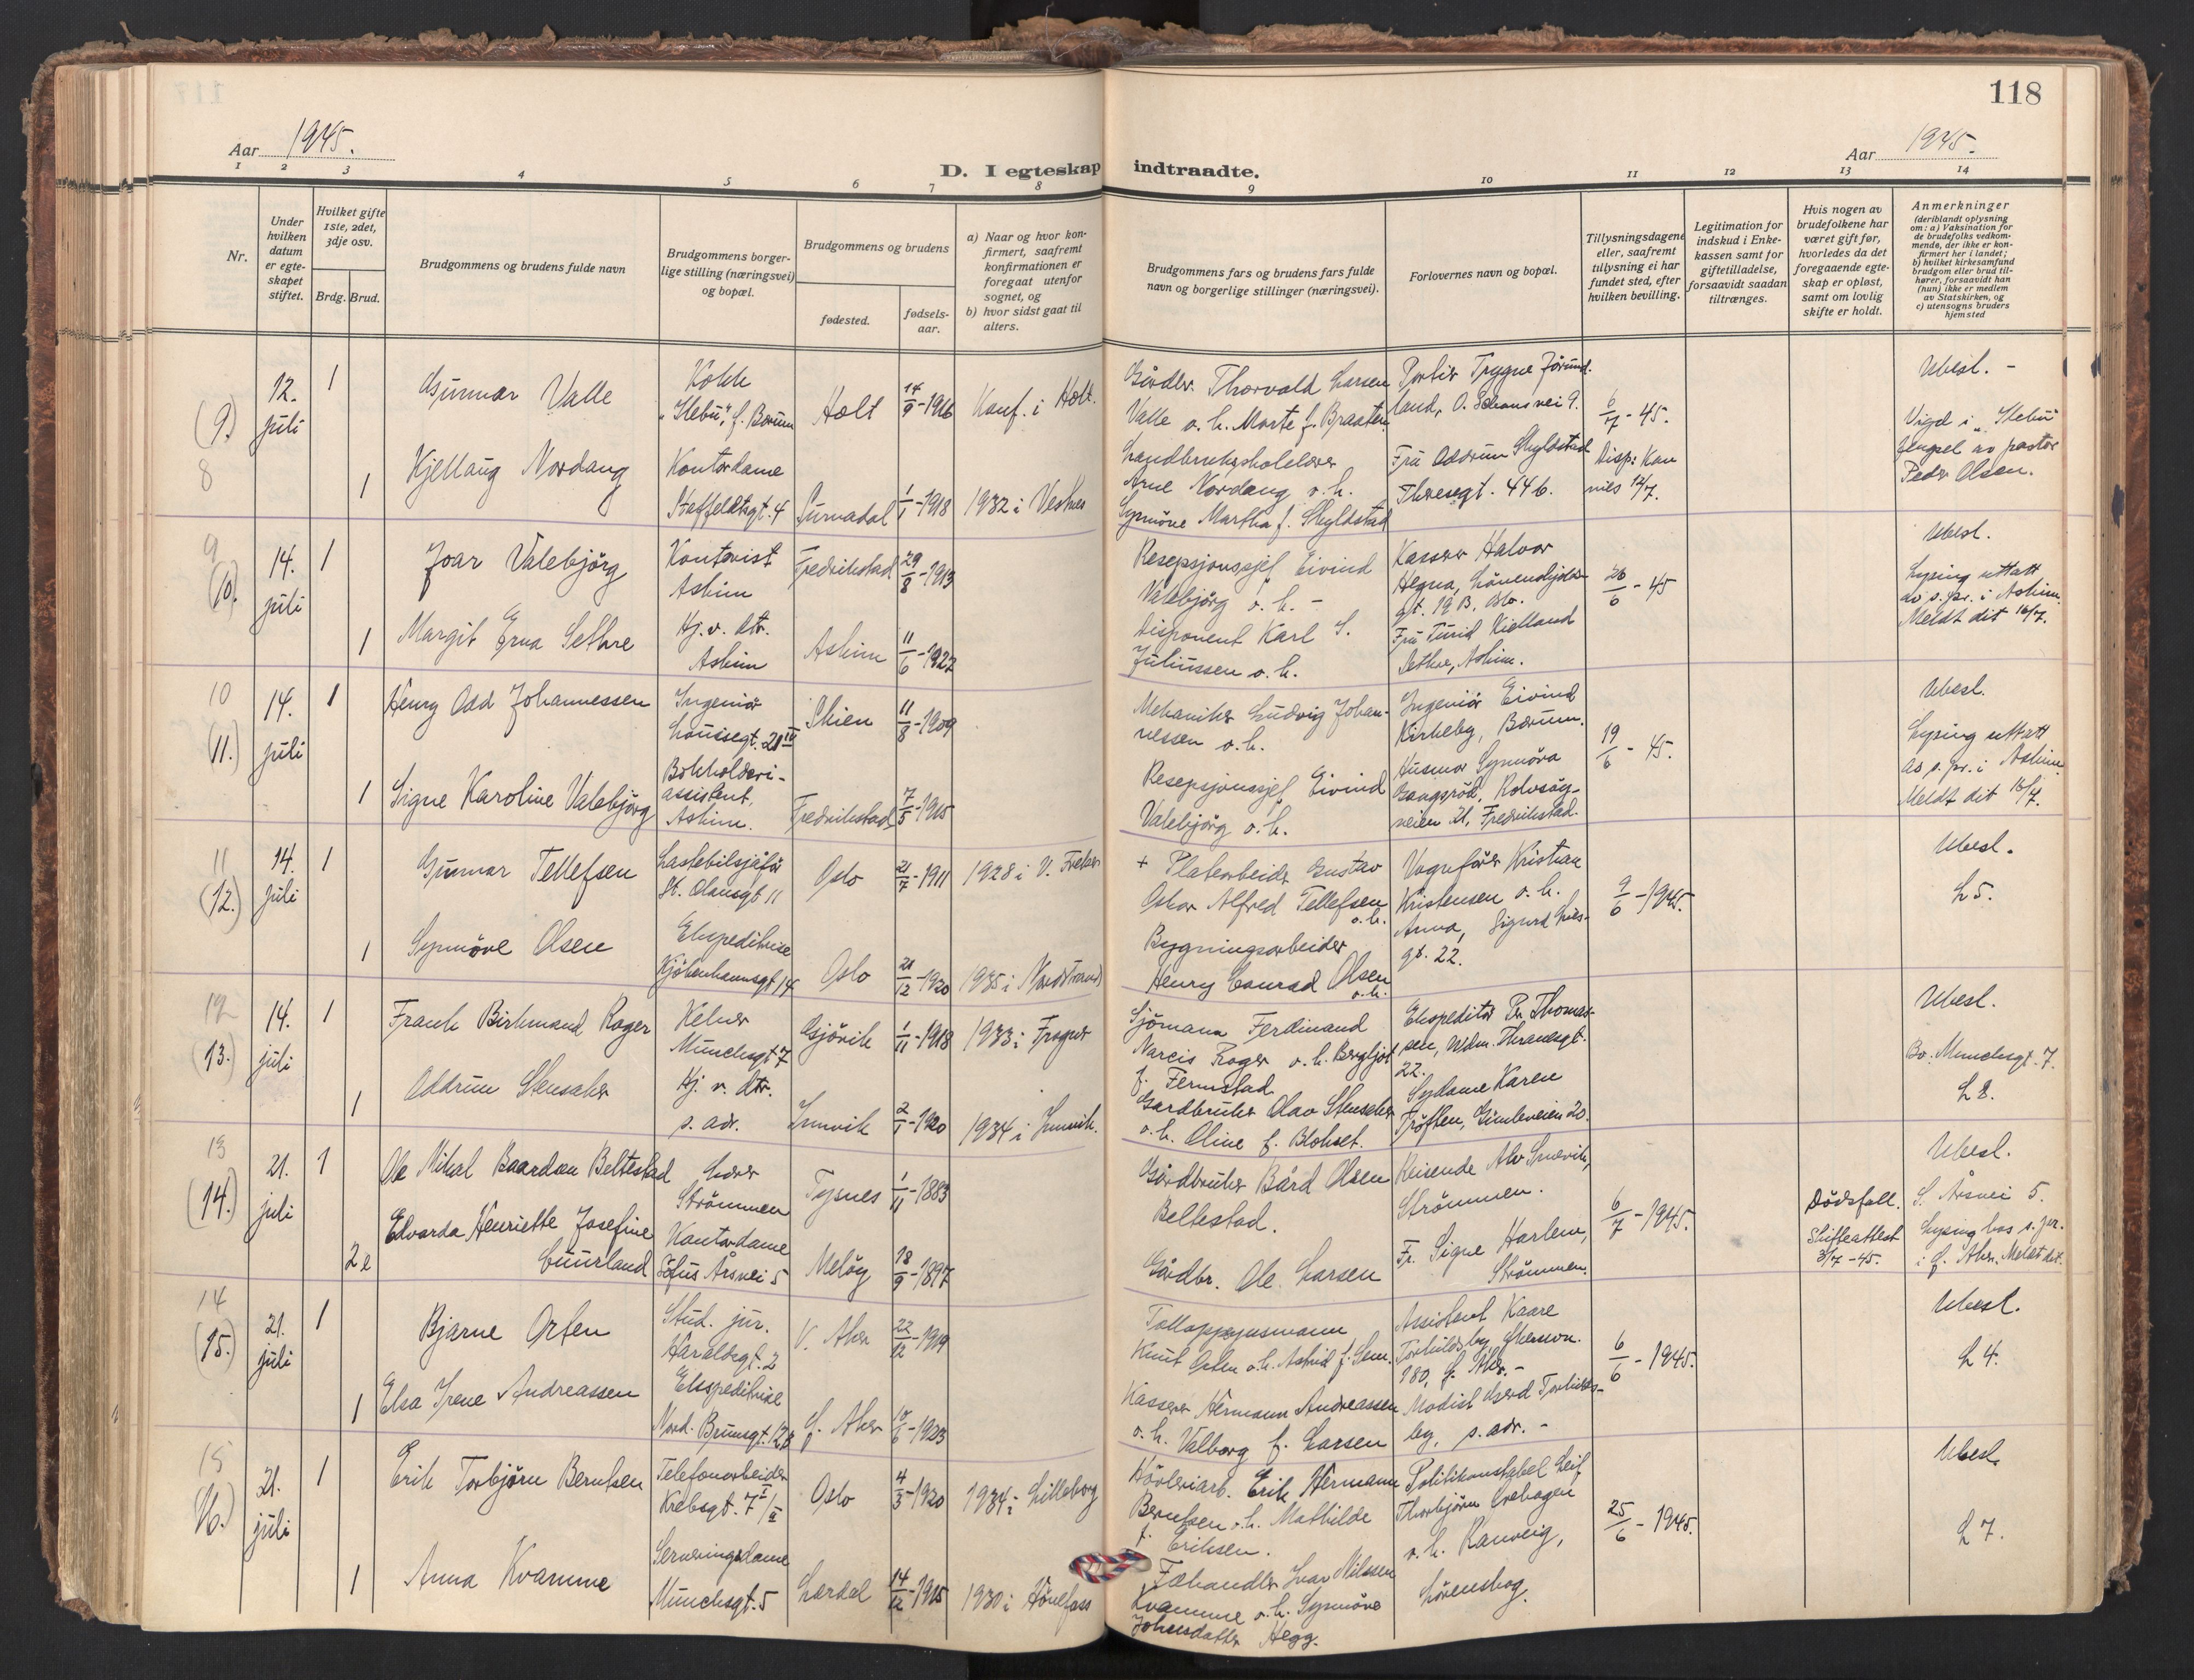 118
Aar 1945.
Aar 1945.
D. I egteskap indtraadte.
1 2 3 4 5 6 7 8 9 10 11 12 13 14
Nr.
Under hvilken datum er egte-skapet stiftet.
Hvilket gifte 1ste, 2det, 3dje osv.
Brdg. Brud.
Brudgommens og brudens fulde navn
Brudgommens borger-
lige stilling (næringsvei)
og bopæl.
Brudgommens og brudens
fødested.
fødsels-
aar.
a) Naar og hvor kon-
firmert, saafremt
konfirmationen er
foregaat utenfor
sognet, og
b) hvor sidst gaat til
alters.
Brudgommens fars og brudens fars fulde
navn og borgerlige stillinger (næringsvei).
Forlovernes navn og bopæl.
Tillysningsdagene
eller, saafremt
tillysning ei har
fundet sted, efter
hvilken bevilling.
Legitimation for
indskud i Enke-
kassen samt for
giftetilladelse,
forsaavidt saadan
tiltrænges.
Hvis nogen av
brudefolkene har
været gift før,
hvorledes da det
foregaaende egte-
skap er opløst,
samt om lovlig
skifte er holdt.
Anmerkninger
(deriblandt oplysning
om: a) Vaksination for
de brudefolks vedkom-
mende, der ikke er kon-
firmert her i landet;
b) hvilket kirkesamfund
brudgom eller brud til-
hører, forsaavidt han
(hun) ikke er medlem
av Statskirken, og
c) utensogns bruders
hjemsted
(9.) 8
12. juli
1
Gunnar Valle
Kokk
"Ilebu", f. Bærum
Holt
14/9-1916
Konf. i Holt.
Gårdbr. Thorvald Larsen
Valle o. h. Marte f. Braaten.
Portier Trygve Jörund-
land, O. Schous vei 9.
6/7-45.
Disp: Kon
nies 12/7.
Ubesl. -
Vigd i "Ilebu"
fengsel av pastor
Peder Olsen.
1
Kjellaug Nordang
Kontordame
Staffeldtsgt. 4
Surnadal
1/1-1918
1932 i Vestnes
Landbruksskolelærer
Arne Nordang o. h.
Synnöve Martha f. Skyldstad
Fru Oddrun Skyldstad
Theresegt. 44 b.
9 (10.)
14. juli
1
Joar Valebjörg
Kontorist
Askim
Fredrikstad
29/8-1913
Resepsjonssjef Eivind
Valebjörg o. h. -
Kasserer Halvor
Hegna, Lövenskjolds-
gt. 19 B. Oslo.
26/6-45
Ubesl.
Lysing uttatt
av s. pr. i Askim.
Meldt dit 16/7.
1
Margit Erna Sethre
Hj. v. dtr.
Askim
Askim
11/6-1922
Disponent Karl S.
Juliussen o. h.
Fru Turid Kielland
Sethre, Askim.
10 (11.)
14. juli
1
Henry Odd Johannessen
Ingeniör
Louisesgt. 21 III
Skien
11/8-1909
Mekaniker Ludvig Johan-
nessen o. h.
Ingeniör Eivind
Kirkeby, Bærum.
19/6-45.
Ubesl.
Lysing uttatt
av s. pr. i Askim
Meldt dit 16/7.
1
Signe Karoline Valebjörg
Bokholderi-
assistent,
Askim.
Fredrikstad
7/5-1915
Resepsjonssjef Eivind
Valebjörg o. h.
Husmor Synnöva
Gangsröd, Rolvsöy-
veien 21, Fredrikstad.
11 (12.)
14. juli
1
Gunnar Tellefsen
Lastebilsjåför
St. Olavsgt 11
Oslo
21/7-1911
1928 i V. Freker
+ Platearbeider Gustav
Oskar Alfred Tellefsen
o. h.
Vognförer Kristian
Kristensen o. h.
Anna, Sigurd Lies-
gt. 22.
9/6-1945.
Ubesl.
L 5.
1
Synnöve Olsen
Ekspeditrise
Kjöbenhavnsgt 14
Oslo
21/12-1920
1935 i Nordstrand
Bygningsarbeider
Henry Conrad Olsen
o. h.
12 (13.)
14. juli
1
Frank Birkmand Roger
Kelner
Munchsgt 7
Gjövik
1/11-1918
1933 i Frogner
Sjömann Ferdinand
Narcis Roger o. h. Bergljot
f. Fermstad
Ekspeditör Pr. Thomas-
sen, Wdm. Thranesgt.
22.
Ubesl.
Bo. Munchsgt. 7.
L 8.
1
Oddrun Stensaker
Hj. v. dtr.
s. adr.
Innvik
2/1-1920
1934 i Innvik.
Gardbruker Olav Stensaker
o. h. Oline f. Blokset.
Sydame Karen
Tröften, Gimleveien 20.
13 (14.)
21. juli
1
Ole Mikal Baardsen Beltestad
Lærer
Strömmen
Tysnes
1/11-1883
Gårdbruker Bård Olsen
Beltestad.
Reisende Alv Snevik,
Strömmen.
6/7-1945.
Dödsfall.
Skifteattest
3/7-45.
Ubesl.
S. Årsvei 5.
Lysing hos s. pr.
i Ö. Aker. Meldt dit.
2e
Edvarda Henriette Josefine
Cuurland
Kontordame
Sofus Årsvei 5
Melöy
18/9-1897
Gårdbr. Ole Larsen
Fr. Signe Harlem,
Strömmen.
14 (15.)
21. juli
1
Bjarne Orten
Stud. jur.
Haraldsgt. 2
V. Aker
22/12-1919
Tolloppsynsmann
Knut Orten o. h. Astrid f. Sem.
Assistent Kaare
Torkildsby, Ekerson.
180, Ö. Aker. -
6/6-1945.
Ubesl.
L 4.
1
Elsa Irene Andreassen
Ekspeditrise
Nord. Brunsgt. 12 B
Ö. Aker
10/6-1923
Kasserer Hermann Andreassen
o. h. Valborg f. Larsen
Modist Gerd Torkilds-
by, s. adr. -
15 (16.)
21. juli
1
Erik Torbjörn Berntsen
Telefonarbeider
Krebsgt. 7 I/II
Oslo
4/3-1920
1934 i Lilleborg
Hövleriarb. Erik Hermann
Berntsen o. h. Mathilde
f. Eriksen.
Politikonstabel Leif
Thorbjörn Grehagen
o. h. Ranveig,
Lörenskog.
25/6-1945.
Ubesl.
L 7.
1
Anna Kvamme
Serveringsdame
Munchsgt. 5
Lærdal
14/12-1915
1930 i Hönefoss
Fehandler Ivar Nilssen
Kvamme o. h. Synnöve
Johnsdatter Hegg.